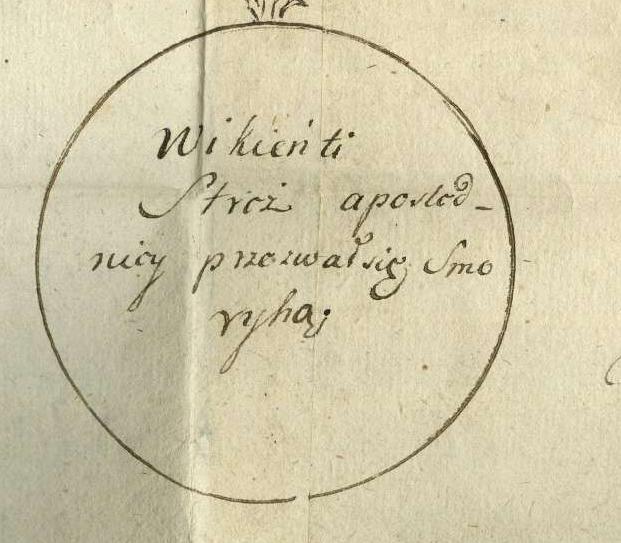 Wikieńti
Stroż aposled-
nicy przezwał się Smo
ryhą;